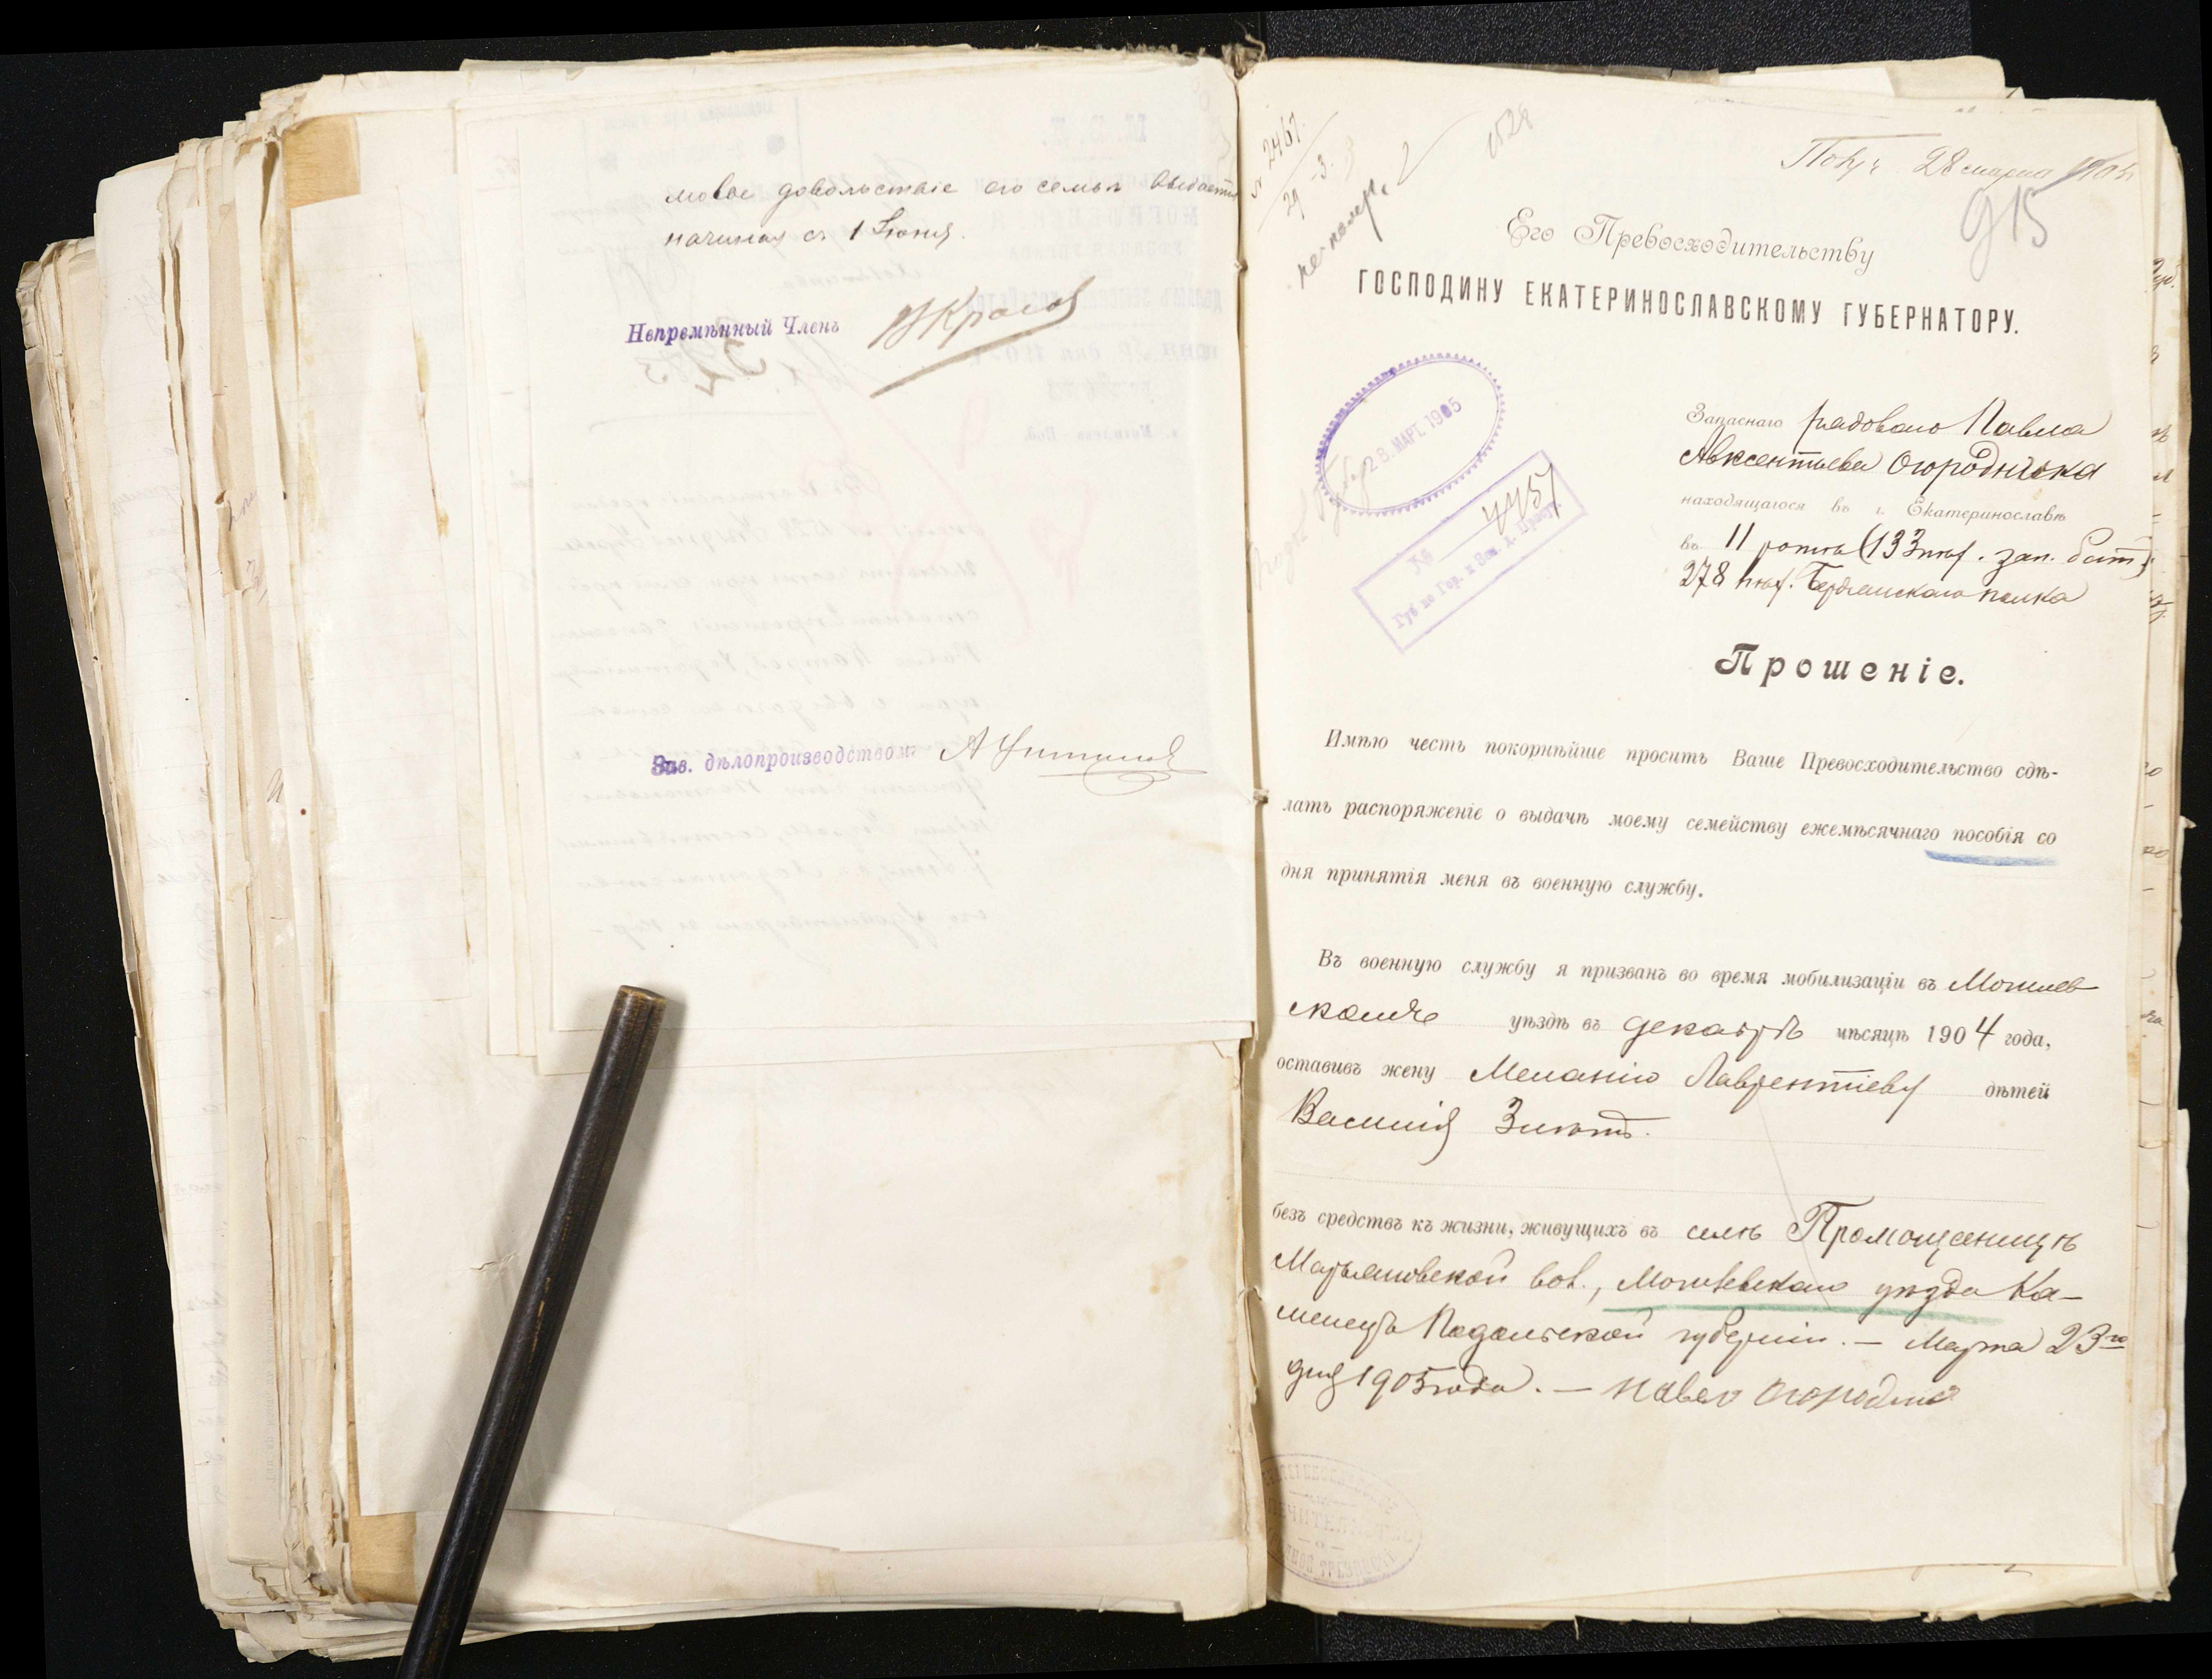 мовое довольствіе его семьѣ выдается
начиная съ 1 Іюня.
Непремѣнный Членъ
Зав. дѣлопроизводствомъ
№ 2467.
29 - 3.
1528
Пол. 28 марта 1905
915
Его Превосходительству
ГОСПОДИНУ ЕКАТЕРИНОСЛАВСКОМУ ГУБЕРНАТОРУ.
28. МАРТ. 1905
№ 4451
Губ. по Гор. и Зем. д. Прис.
Запаснаго рядового Павла
Авксентьева Огородника
находящагося въ г. Екатеринославѣ
въ 11 ротѣ (133 пѣх. зап. бат.)
278 пѣх. Бердянскаго полка
Прошеніе.
Имѣю честь покорнѣйше просить Ваше Превосходительство сдѣ-
лать распоряженіе о выдачѣ моему семейству ежемѣсячнаго пособія со
дня принятія меня въ военную службу.
Въ военную службу я призванъ во время мобилизаціи въ Могилев
скомъ уѣздѣ въ декабрѣ мѣсяцѣ 1904 года,
оставивъ жену Меланію Лаврентіеву дѣтей
Василія 3 лѣтъ.
безъ средствъ къ жизни, живущихъ въ селѣ
вол., Могилевскаго уѣзда Ка-
менецъ Подольской губерніи. — Марта 23го
дня 1905 года. — Павел Огородник